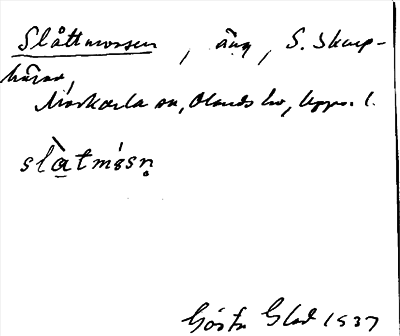 Slåttmossen, äng, S. Skarp-
Morkarla sn, Olands hd, Upps. l.
slàtmósn̥
Gösta Glad 1937